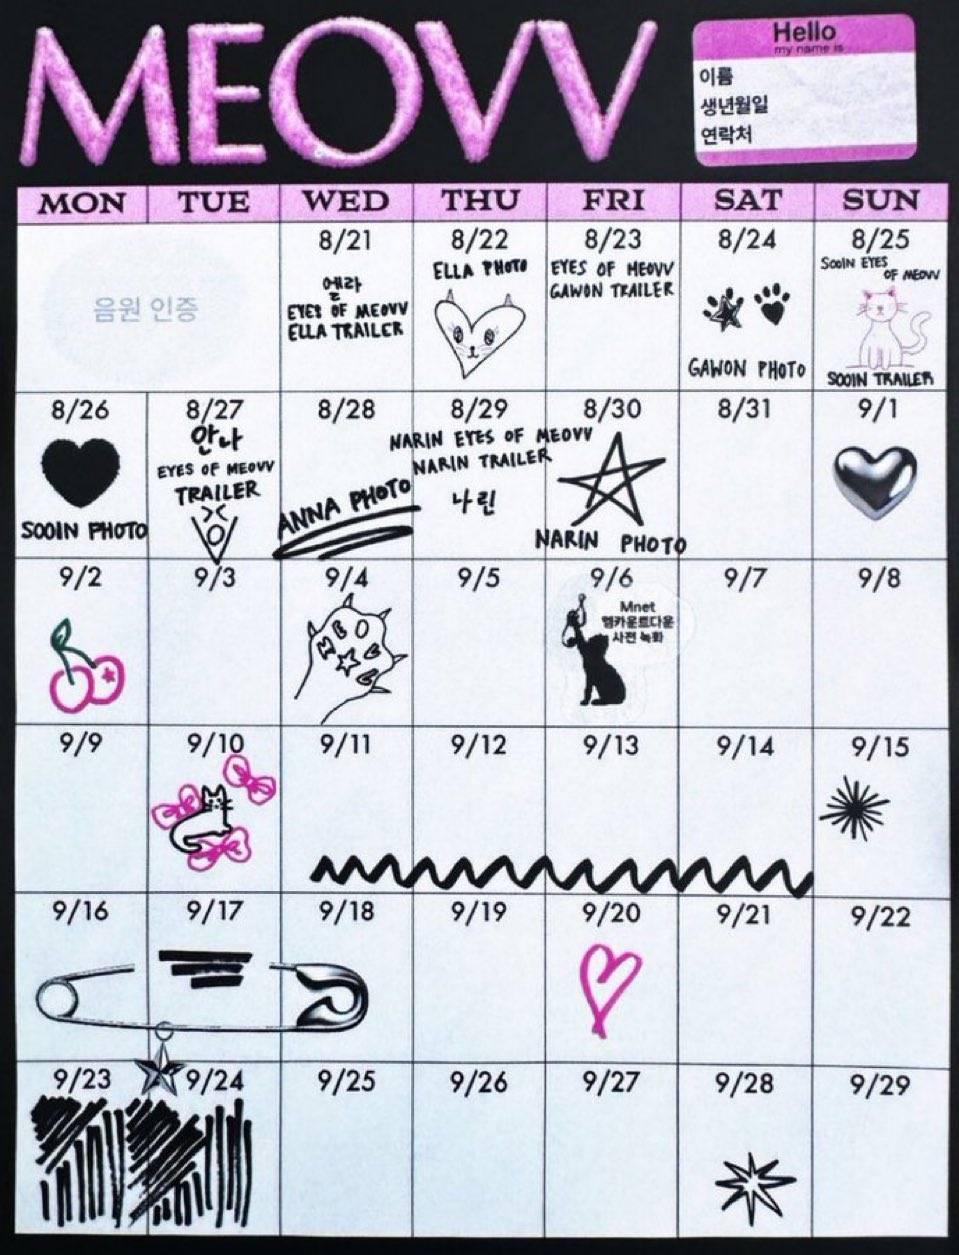 MEOVV
Hello
my name is
이름
생년월일
연락처
MON TUE WED THU FRI SAT SUN
음원 인증
8/21
엘라
EYES OF MEOVV
ELLA TRAILER
8/22
ELLA PHOTO
8/23
EYES OF MEOVV
GAWON TRAILER
8/24
GAWON PHOTO
8/25
SOOIN EYES
OF MEOVV
SOOIN TRAILER
8/26
SOOIN PHOTO
8/27
안나
EYES OF MEOVV
TRAILER
8/28
ANNA PHOTO
8/29
NARIN EYES OF MEOVV
NARIN TRAILER
나린
8/30
NARIN PHOTO
8/31
9/1
9/2
9/3
9/4
MEO
9/5
9/6
Mnet
엠카운트다운
사전 녹화
9/7
9/8
9/9
9/10
9/11
9/12
9/13
9/14
9/15
9/16
9/17
9/18
9/19
9/20
9/21
9/22
9/23
9/24
9/25
9/26
9/27
9/28
9/29